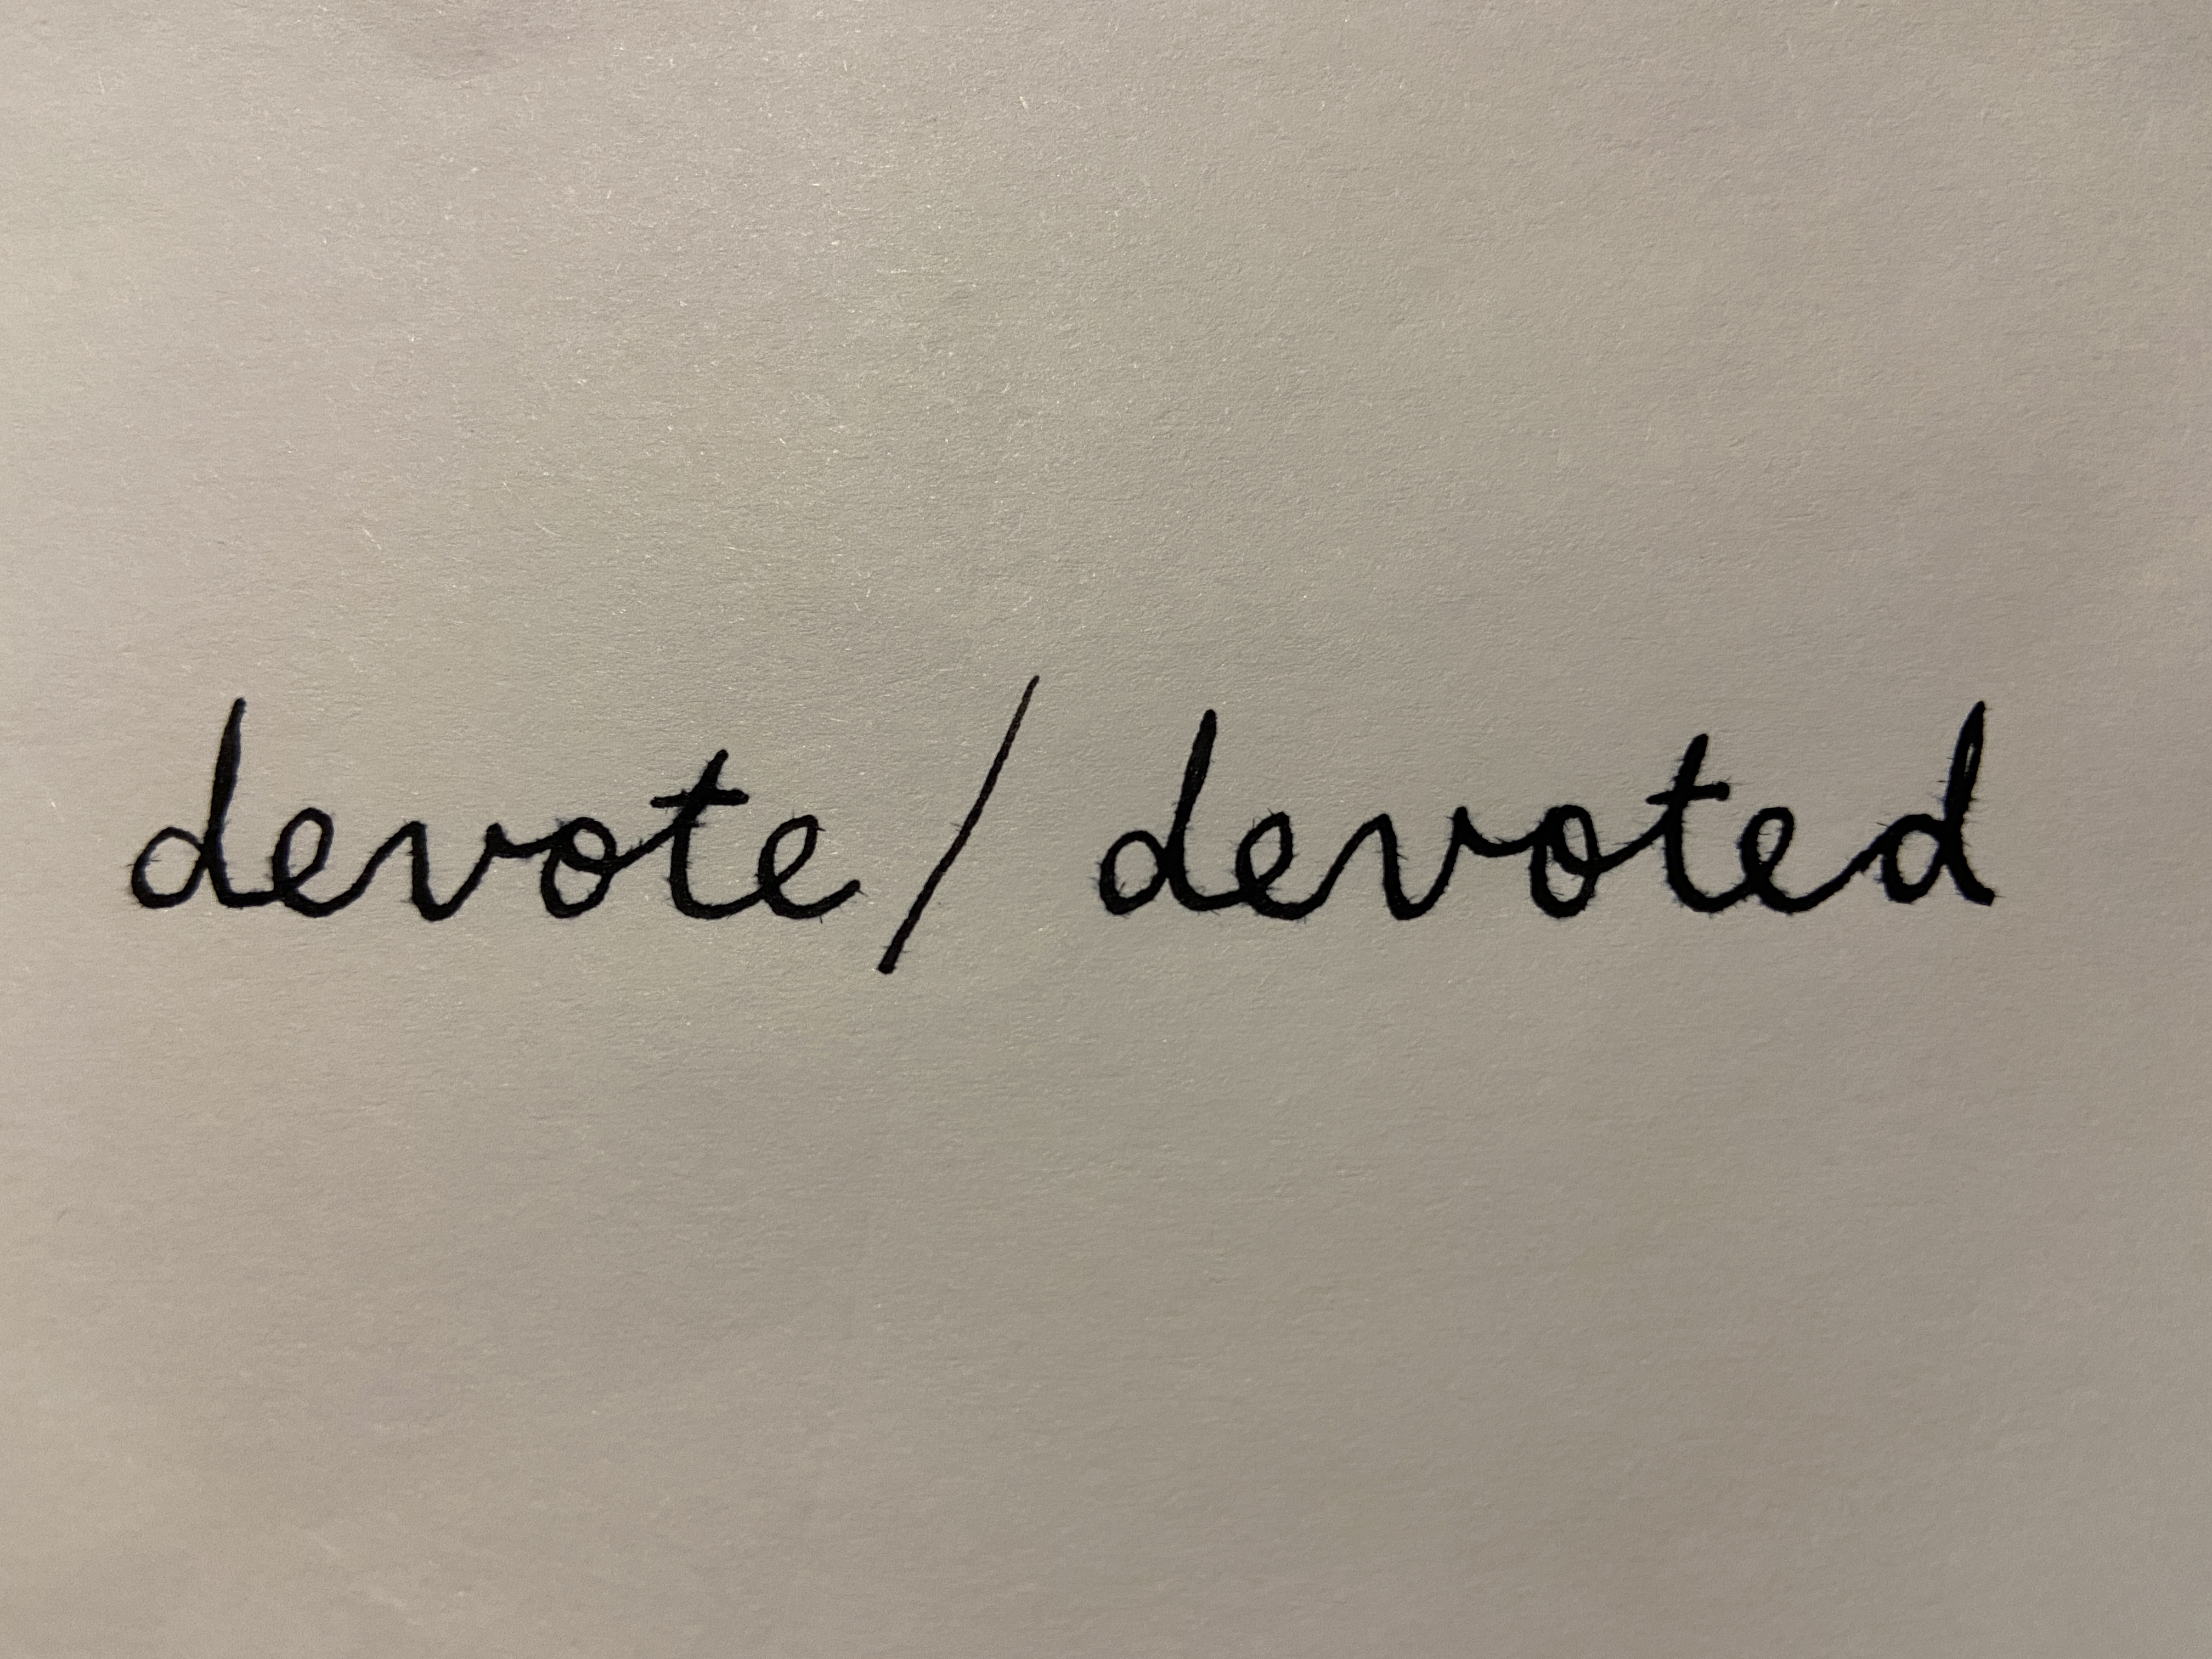 devote / devoted